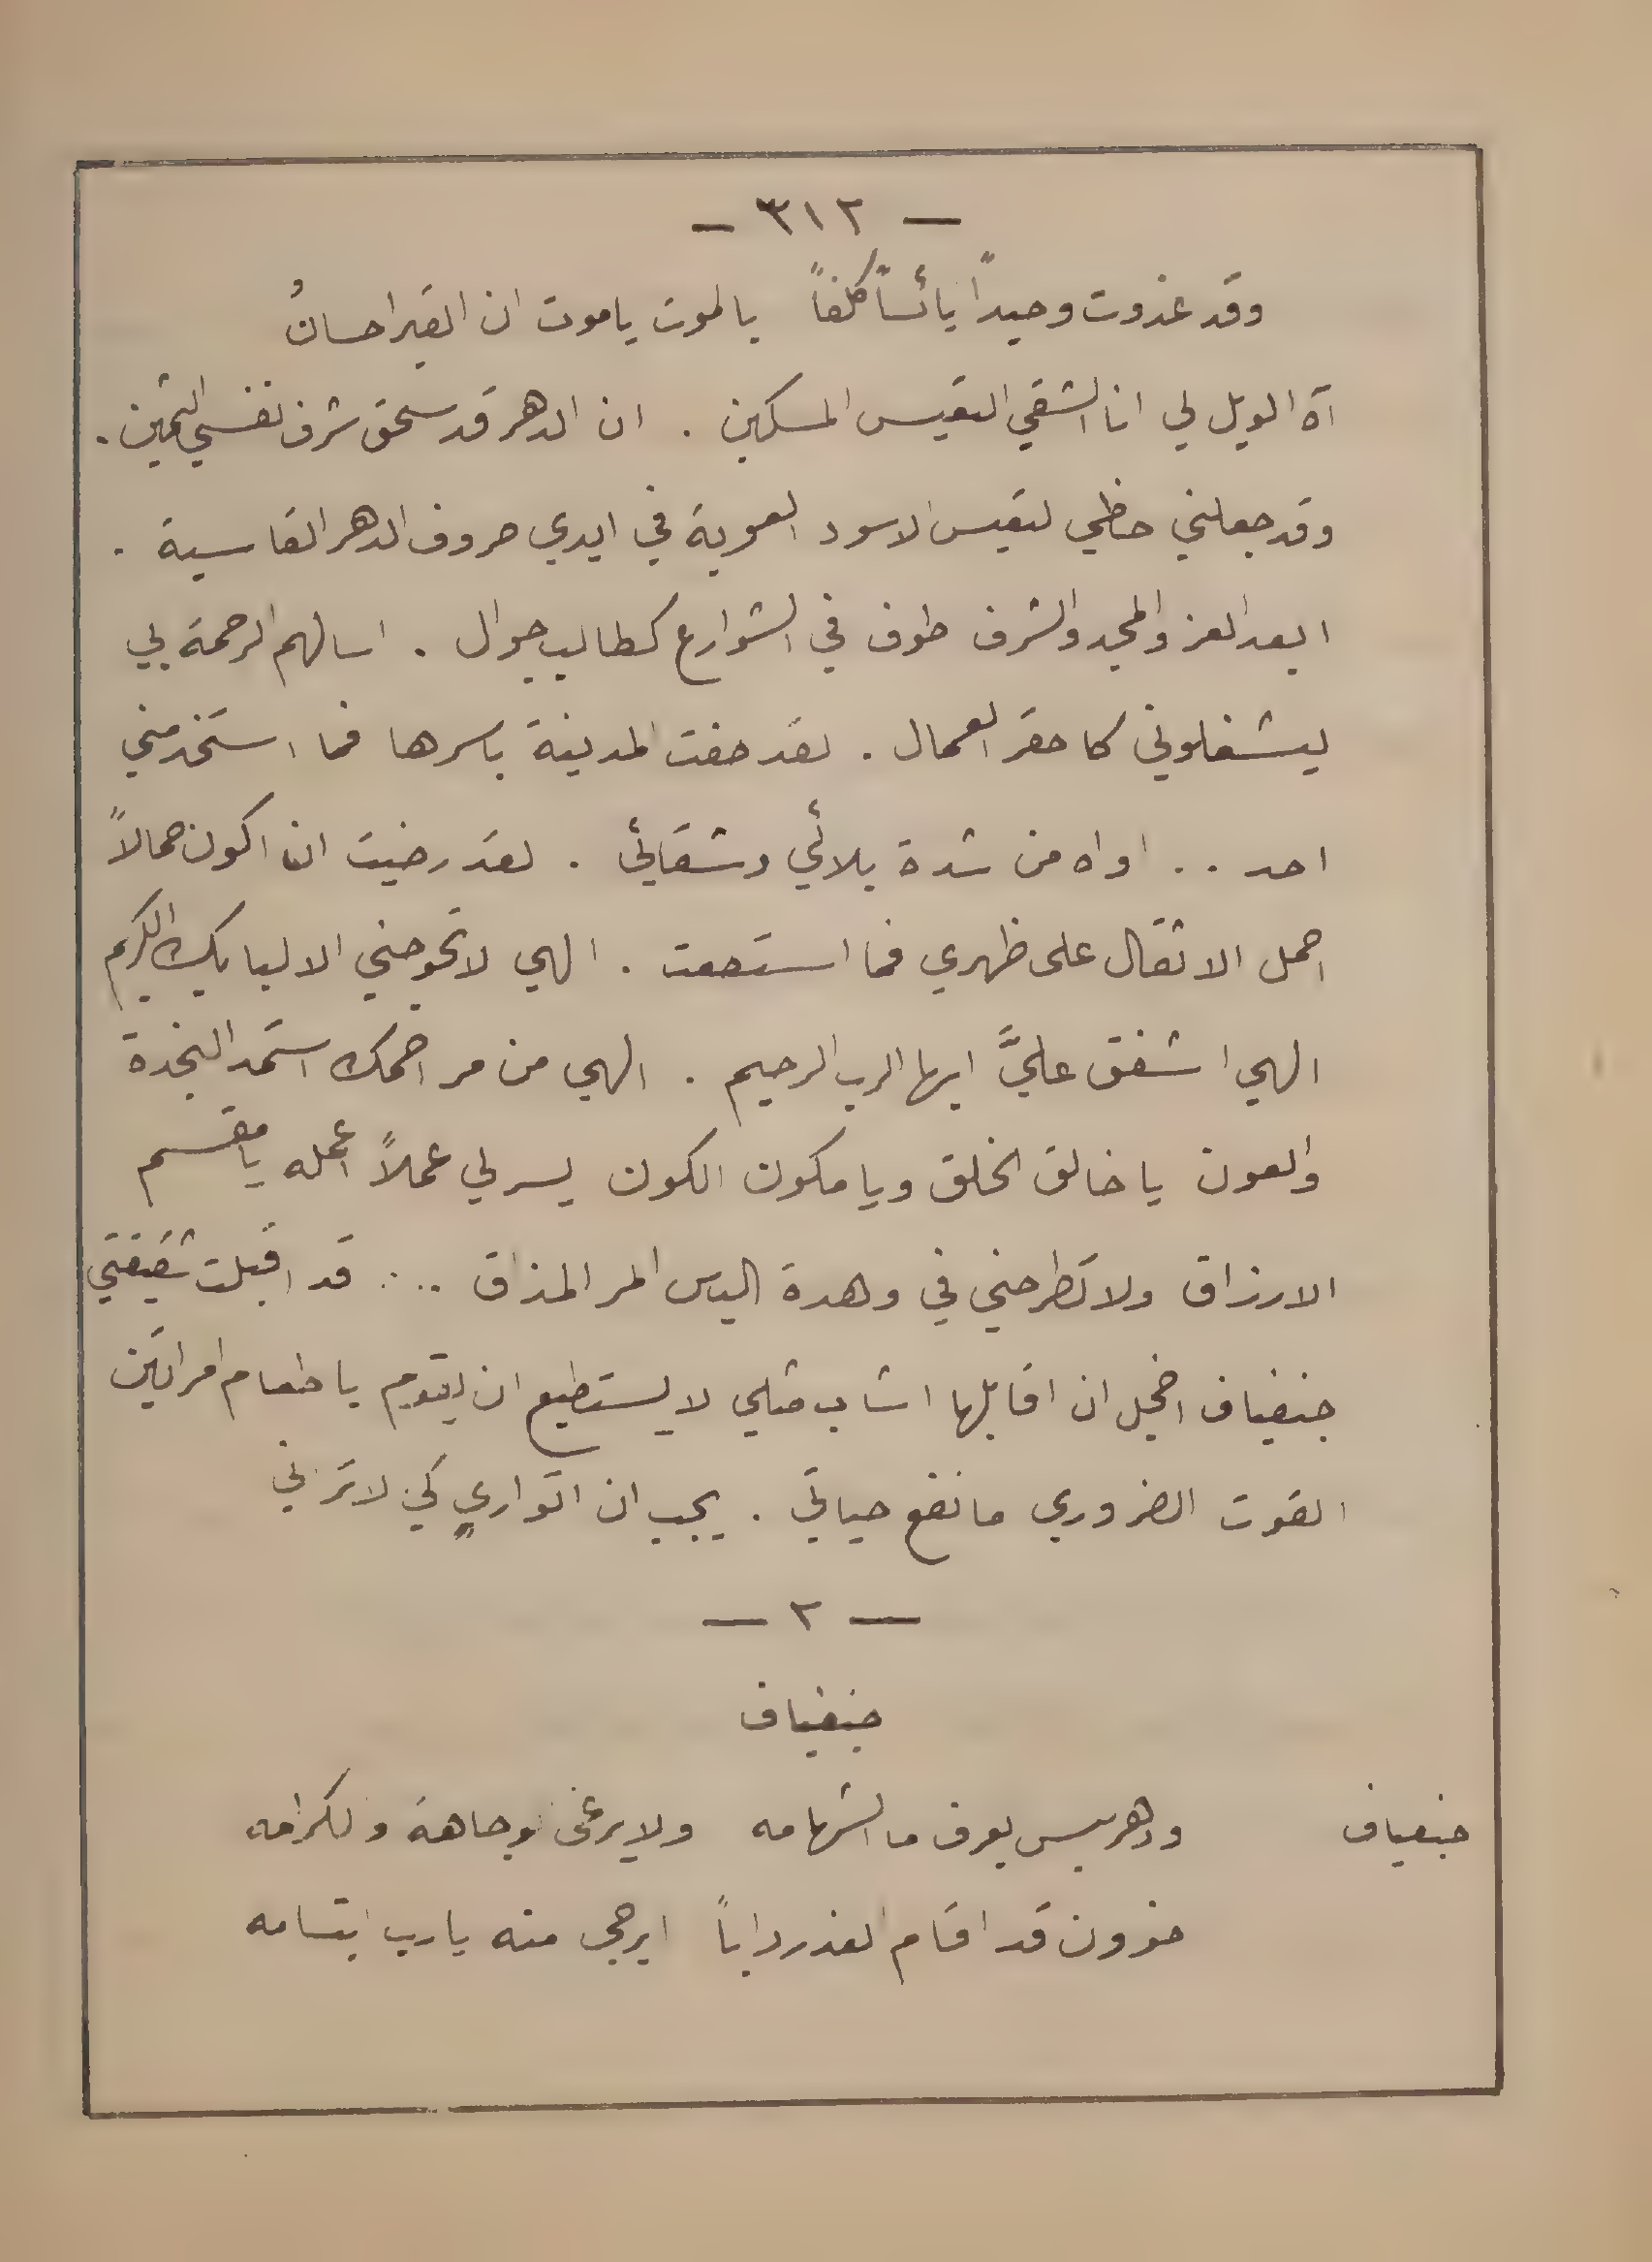 — ٣١٢ —
وقد غدوت وحيداً يائساً كلفاً يالموت ياموت ان القبر احسانُ
آه الويل لي انا الشقي التعيس المسكين . ان الدهر قد سحق شرف نفسي الثمين .
وقد جعلني حظي لتعيس الاسود العوبة في ايدي صروف الدهر القاسية .
ابعد العز والمجد والشرف طوف في الشوارع كطالب جوال . اسالهم الرحمة بي
ليشغلوني كاحقر العمال . لقد طفت المدينة باسرها فما استخدمني
احد .. اواه من شدة بلائي وشقائي . لقد رضيت ان اكون حمالاً
احمل الاثقال على ظهري فما استطعت . الهي لاتحوجني الا لبابك الكريم
الهي اشفق عليَّ ايها الرب الرحيم . الهي من مراحمك استمد النجدة
والعون ياخالق الخلق ويا مكون الكون يسر لي عملاً اعمله يا مقسم
الارزاق ولا تطرحني في وهدة الياس المر المذاق ... قد اقبلت شقيقتي
جنفياف اخجل ان اقابلها اشاب مثلي لا يستطيع ان يقوم باطعام امراتين
القوت الضروري مانفع حياتي . يجب ان اتواري كي لاتراني
— ٢ —
جنفياف
جنفياف ودهر ليس يعرف ما الشهامه ولا يرعى لوجاهة ولكرامه
خؤون قد اقام الغدر داباً ايرجى منه يارب ابتسامه